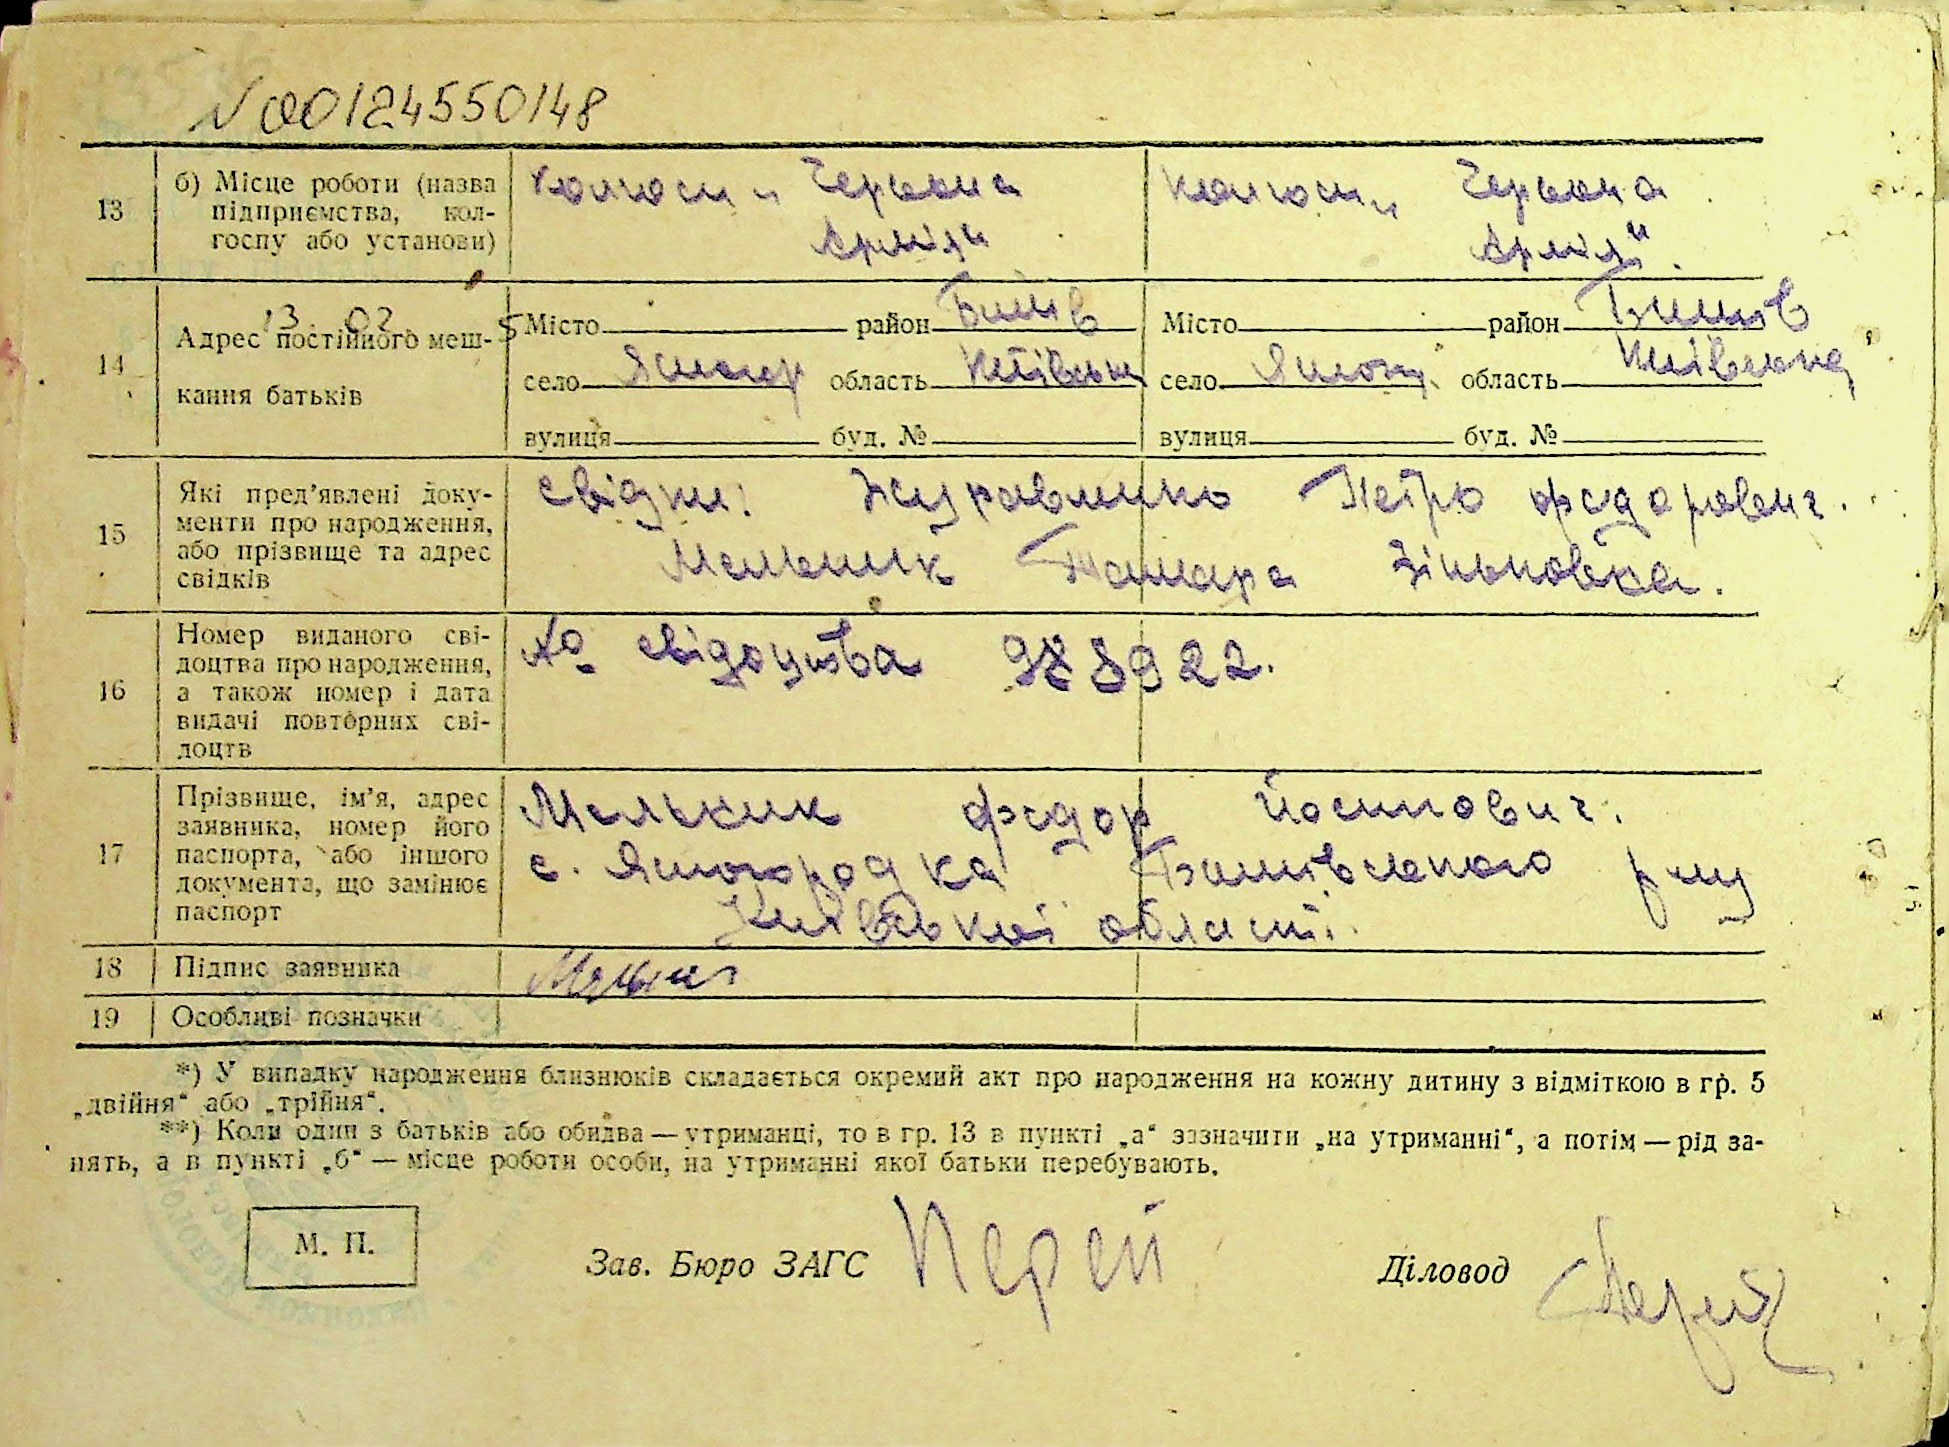 №00124550148
13 б) Місце роботи (назва підприємства, кол-госпу або установи) Колгосп „Червона Армія“ Колгосп „Червона Армія“.
14 Адрес постійного меш-кання батьків
13 02 5
Місто район Бишів Місто район Бишів
село Ясногор область Київськ село Ясногор. область Київська
вулиця буд. № вулиця буд. №
15 Які пред’явлені доку-менти про народження, або прізвище та адрес свідків
свідки: Журавленко Петро Федорович.
Мельник Тамара Зіньковівка.
16 Номер виданого сві-доцтва про народження, а також номер і дата видачі повторних сві-доцтв
№ свідоцтва 988922.
17 Прізвище, ім’я, адрес заявника, номер його паспорта, або іншого документа, що замінює паспорт
Мельник Федор Йосипович.
с. Ясногородка Бишівського р-ну
Київської області.
18 Підпис заявника
19 Особливі позначки
*) У випадку народження близнюків складається окремий акт про народження на кожну дитину з відміткою в гр. 5
„двійня“ або „трійня“.
**) Коли один з батьків або обидва — утриманці, то в гр. 13 в пункті „а“ зазначити „на утриманні“, а потім — рід за-
нять, а в пункті „б“ — місце роботи особи, на утриманні якої батьки перебувають.
М. П.
Зав. Бюро ЗАГС
Діловод